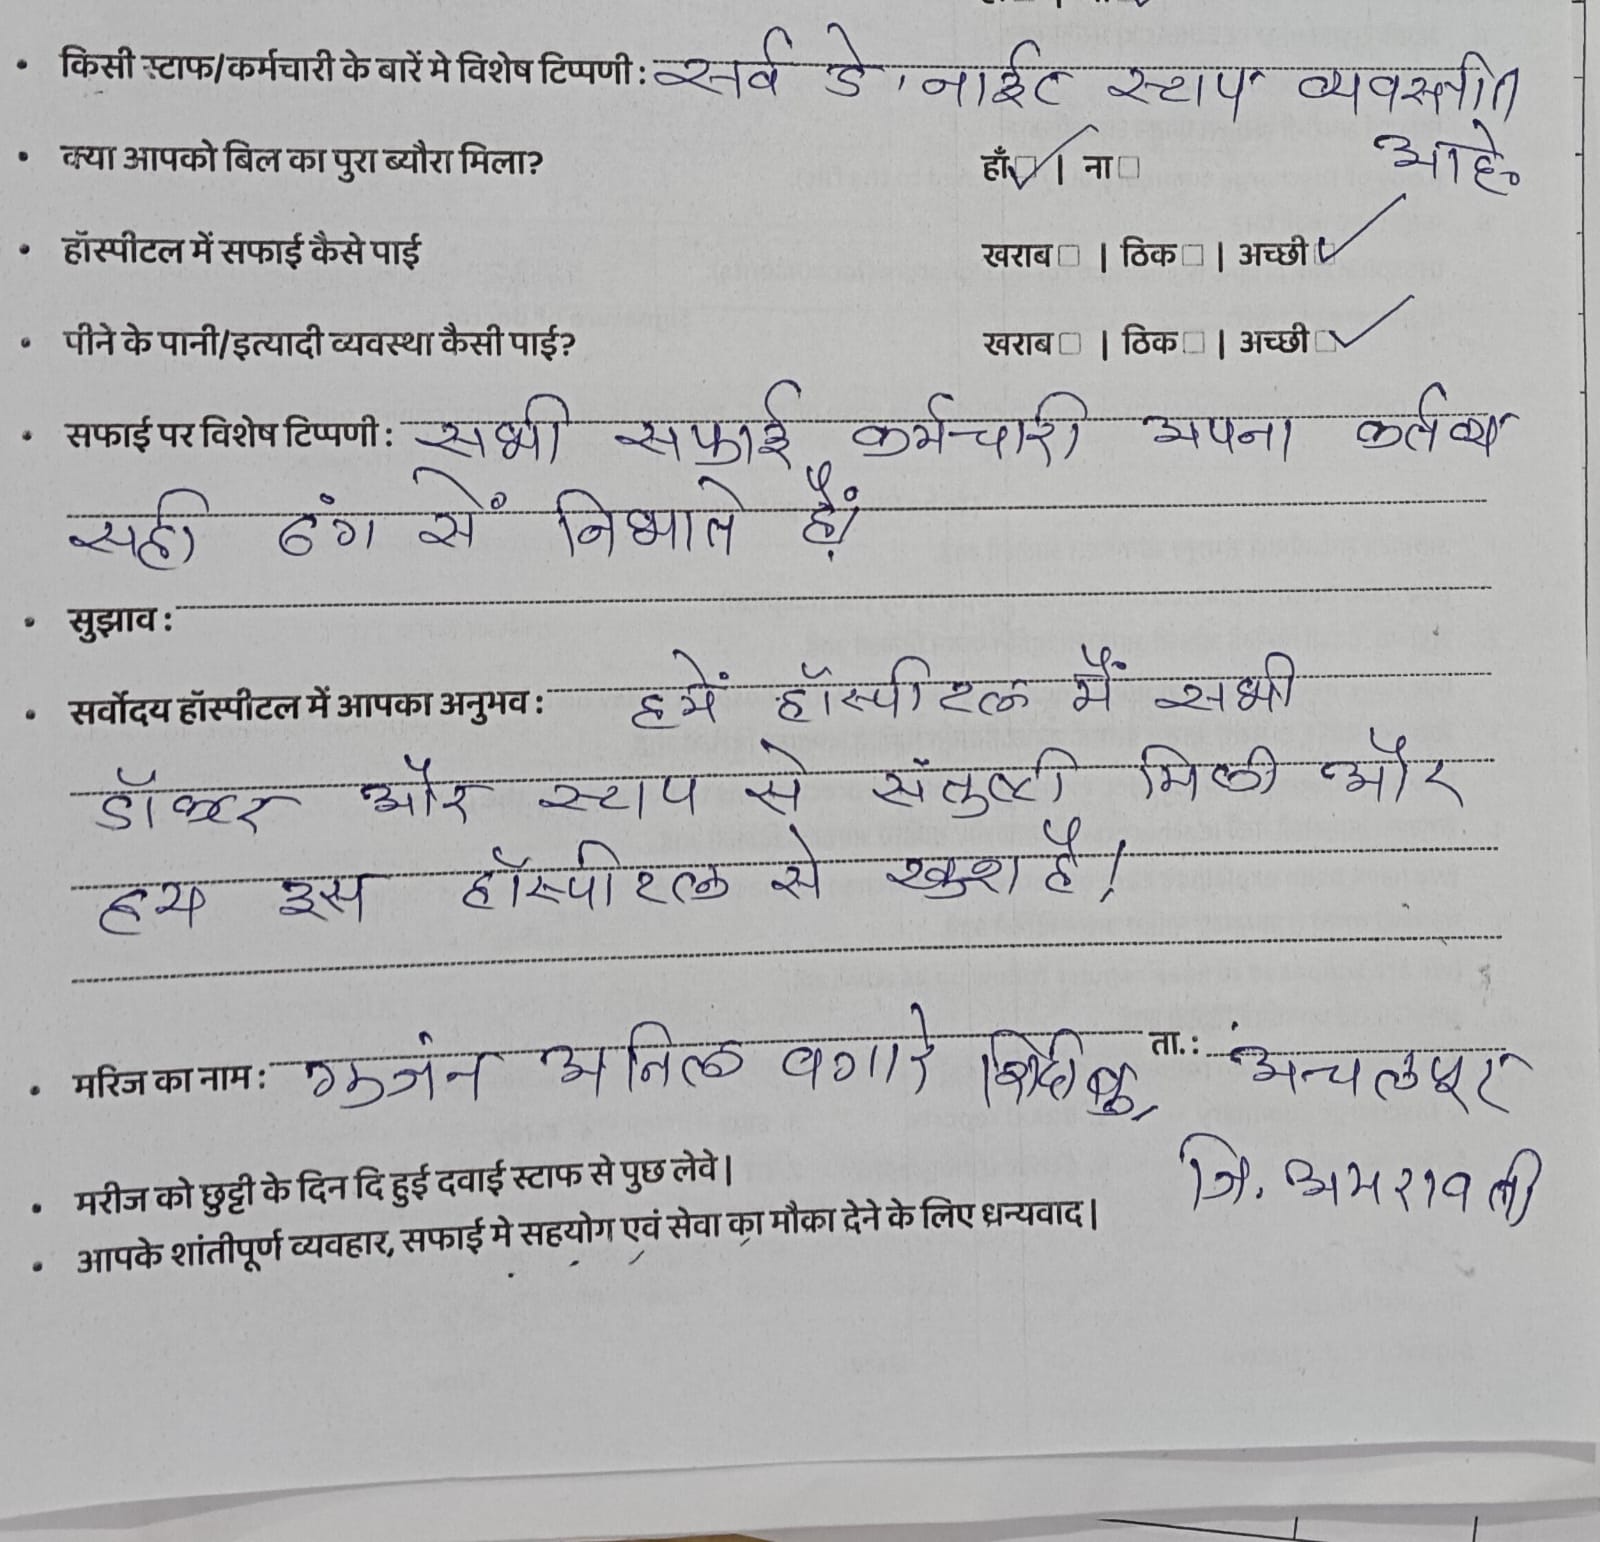 • किसी स्टाफ/कर्मचारी के बारें मे विशेष टिप्पणी : सर्व डे, नाईट स्टाप व्यवस्तीत
आहे.
• क्या आपको बिल का पुरा ब्यौरा मिला? हाँ☑ | ना□
• हॉस्पीटल में सफाई कैसे पाई खराब□ | ठिक□ | अच्छी☑
• पीने के पानी/इत्यादी व्यवस्था कैसी पाई? खराब□ | ठिक□ | अच्छी☑
• सफाई पर विशेष टिप्पणी : सभी सफाई कर्मचारी अपना कर्तव्य
सही ढंग सें निभाते हैं।
• सुझाव :
• सर्वोदय हॉस्पीटल में आपका अनुभव : हमें हॉस्पीटल मैं सभी
डॉक्टर और स्टाप से संतुष्टी मिली और
हम इस हॉस्पीटल से खुश है।
• मरिज का नाम : अनिल वगारे ता.: अचलपूर
जि. अमरावती
• मरीज को छुट्टी के दिन दि हुई दवाई स्टाफ से पुछ लेवे |
• आपके शांतीपूर्ण व्यवहार, सफाई मे सहयोग एवं सेवा का मौका देने के लिए धन्यवाद |